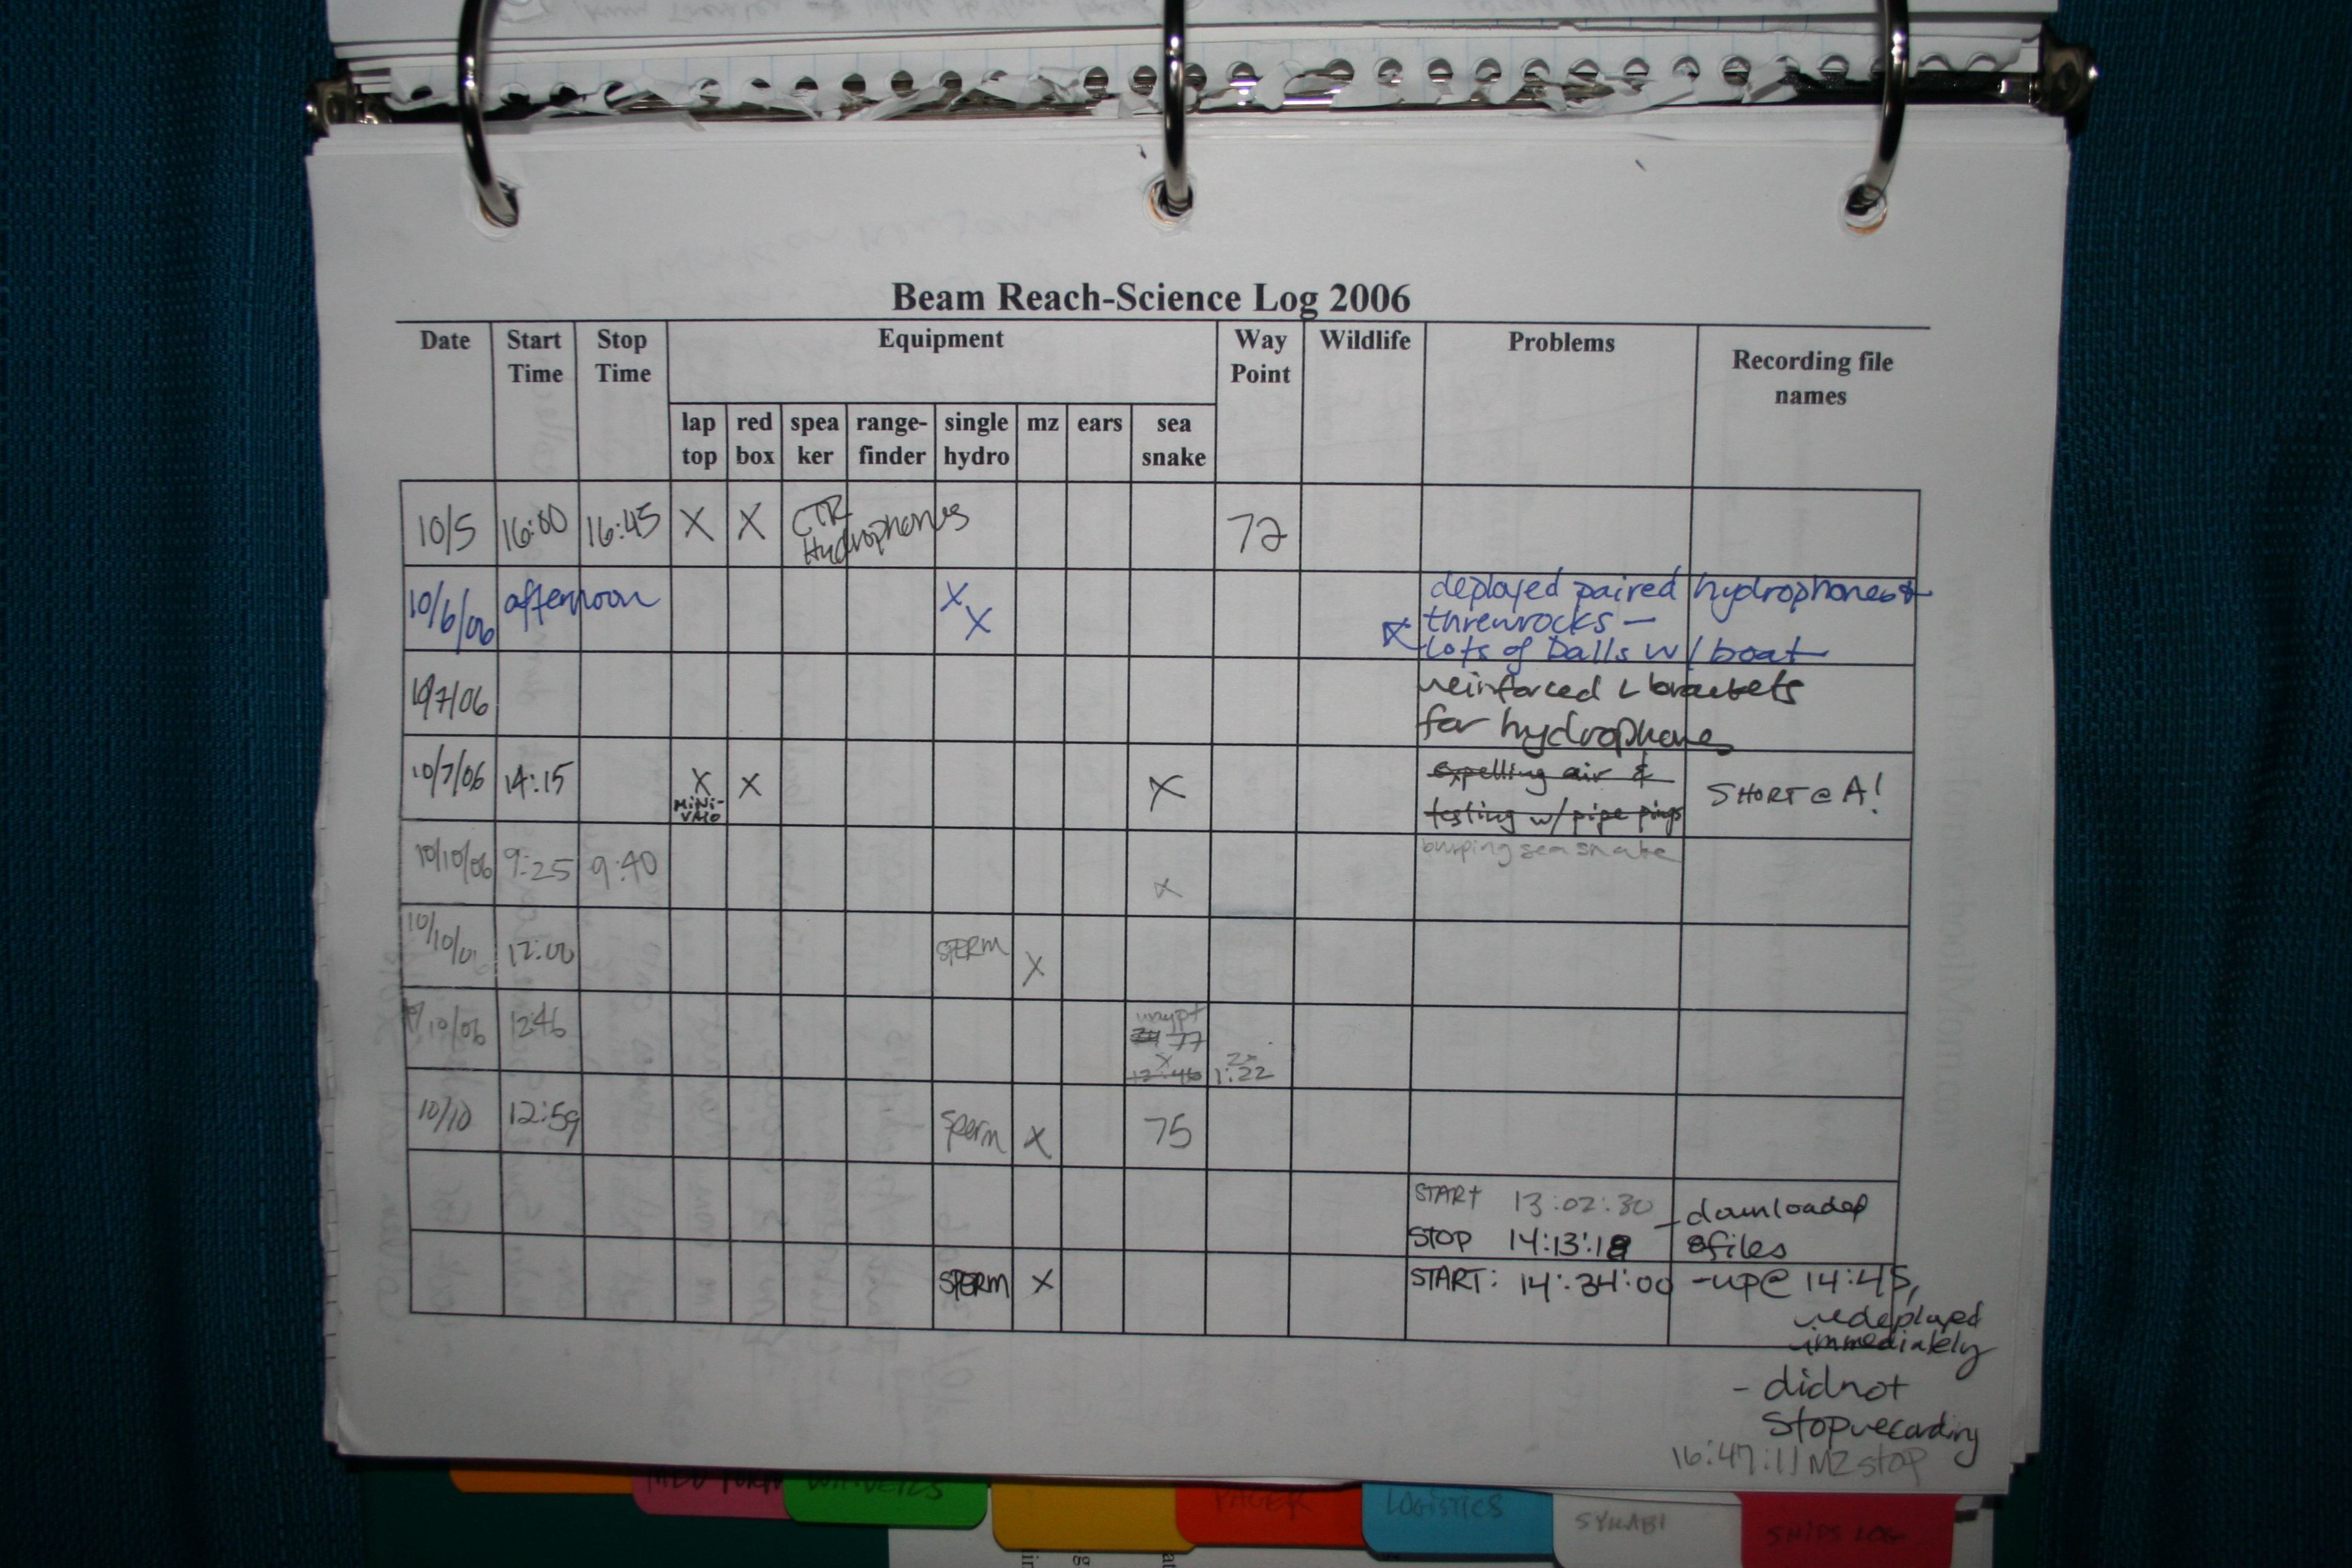 Beam Reach-Science Log 2006
Date Start Time Stop Time Equipment Way Point Wildlife Problems Recording file names
lap top red box spea ker range-finder single hydro mz ears sea snake
10/5 16:00 16:45 X X CTR Hydrophones 72
10/6/06 afternoon X X deployed paired hydrophones &
threw rocks —
lots of Dalls w/ boat
10/7/06 reinforced L brackets
for hydrophones
10/7/06 14:15 X MiNi-VAIO X X expelling air & SHORT @ A!
testing w/ pipe pings
10/10/06 9:25 9:40 X burping sea snake
10/10/0 12:00 SPERM X
10/06 12:46 waypt
77
X
12:46 1:22
10/10 12:59 Sperm X 75
START 13:02:30 - downloaded
STOP 14:13:18 8 files
SPERM X START: 14:34:00 - up @ 14:45,
redeployed
immediately
- did not
stop recording
16:47:11 MZ stop
MED FORM
WAIVERS
PAGER
LOGISTICS
SYLLABI
SHIPS LOG